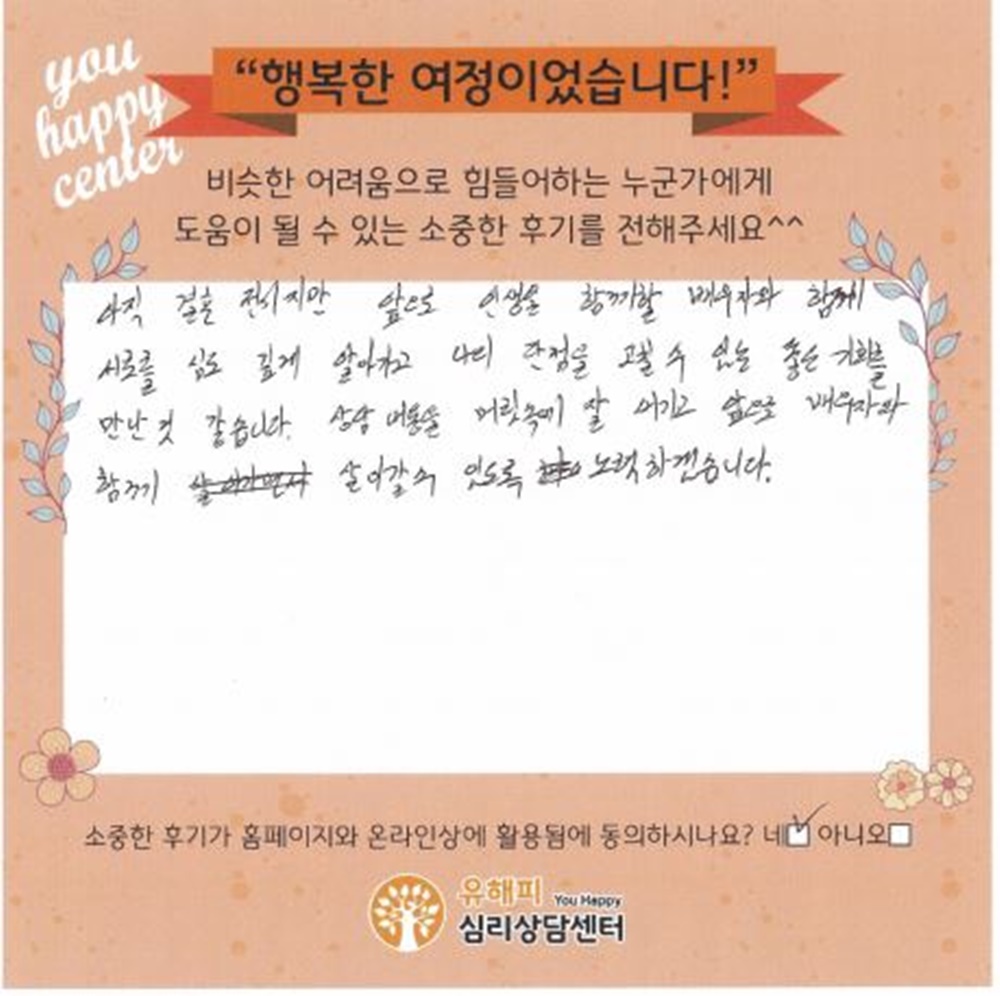 you
happy
center
“행복한 여정이었습니다!”
비슷한 어려움으로 힘들어하는 누군가에게
도움이 될 수 있는 소중한 후기를 전해주세요^^
아직 결혼 전이지만 앞으로 인생을 함께할 배우자와 함께
서로를 심도 깊게 알아가고 나의 단점을 고칠 수 있는 좋은 기회를
만난 것 같습니다. 상담 내용을 머릿속에 잘 새기고 앞으로 배우자와
함께 살아갈 수 있도록 노력하겠습니다.
소중한 후기가 홈페이지와 온라인상에 활용됨에 동의하시나요? 네 아니오
유해피 You Happy
심리상담센터